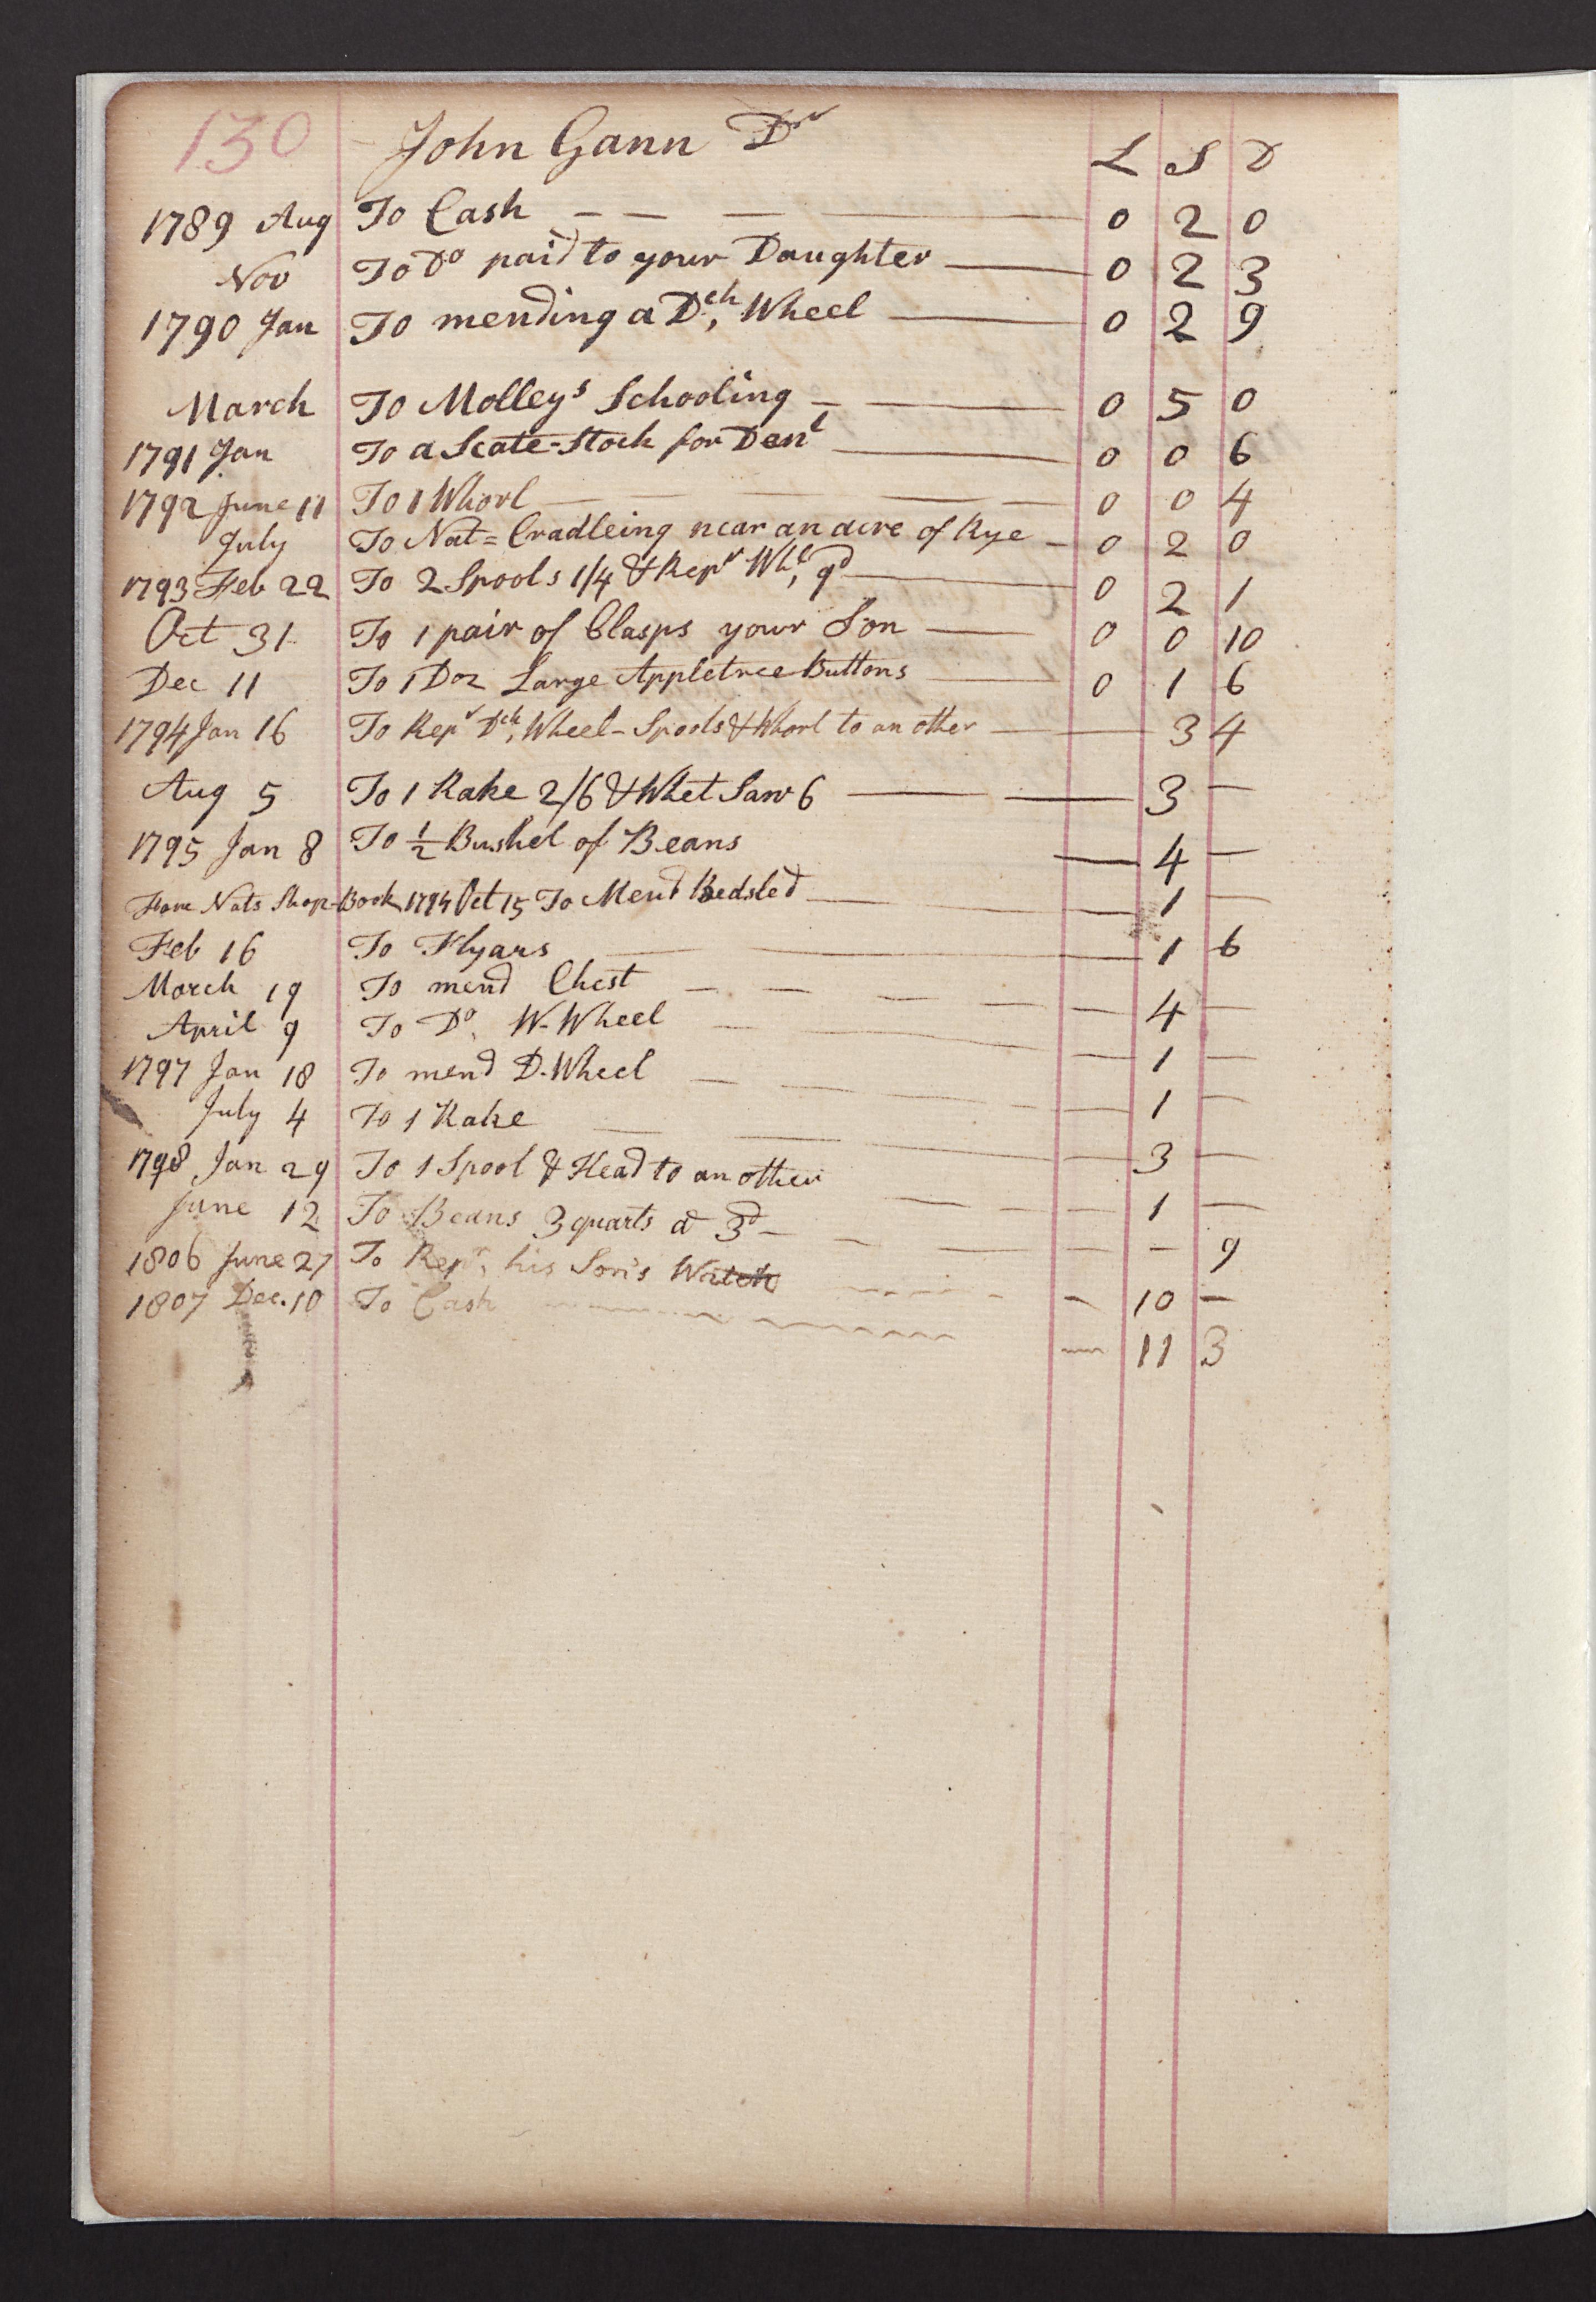 130 John Gann Dr L S D
1789 Aug To Cash — — — — 0 2 0
Nov To Do paid to your Daughter — 0 2 3
1790 Jan To mending a Dch, Wheel — 0 2 9
March To Molleys Schooling — — 0 5 0
1791 Jan To a Scate-Stock for Danl — 0 0 6
1792 June 11 To 1 Whorl — — — — — 0 0 4
July To Nat= Cradleing near an acre of Rye — 0 2 0
1793 Feb 22 To 2 Spools 1/4 & Repr Whl, 9d — 0 2 1
Oct 31 To 1 pair of Clasps your Son — 0 0 10
Dec 11 To 1 Doz Large Appletree Buttons — 0 1 6
1794 Jan 16 To Repr Dch, Wheel - Spools & Whorl to an other — — 3 4
Aug 5 To 1 Rake 2/6 & Whet Saw 6 — — 3 —
1795 Jan 8 To 1/2 Bushel of Beans — 4 —
Nats Shop-Book 1794 Oct 15 To Mend Bedsted — — — 1 —
Feb 16 To Flyars — — 1 6
March 19 To mend Chest — — — — — 4 —
April 9 To Do. W-Wheel — — — — 1 —
1797 Jan 18 To mend D-Wheel — — — — 1 —
July 4 To 1 Rake — — — 3 —
1798 Jan 29 To 1 Spool & Head to an other — — — — 1 —
June 12 To Beans 3 quarts a 3d — — — — — — 9
1806 June 27 To Repr, his Son's Watch — — — 10 —
1807 Dec. 10 To Cash — — — 11 3